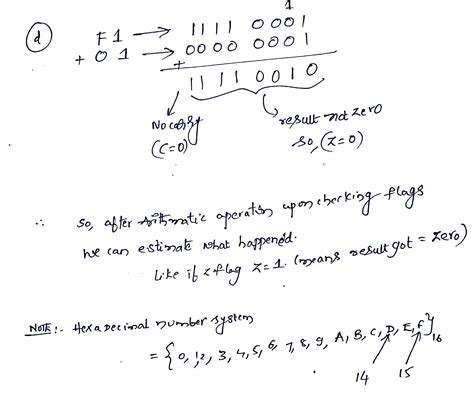 1
(d) F1 → 1111 0001
+ 01 → 0000 0001
+
1111 0010
No carry result not zero
(C=0) so, (Z=0)
∴ So, after arithmatic operation upon checking flags
we can estimate what happened.
Like if z flag Z=1. (means result got = zero)
NOTE:- Hexadecimal number system
= {0,1,2,3,4,5,6,7,8,9,A,B,C,D,E,F}16
14 15